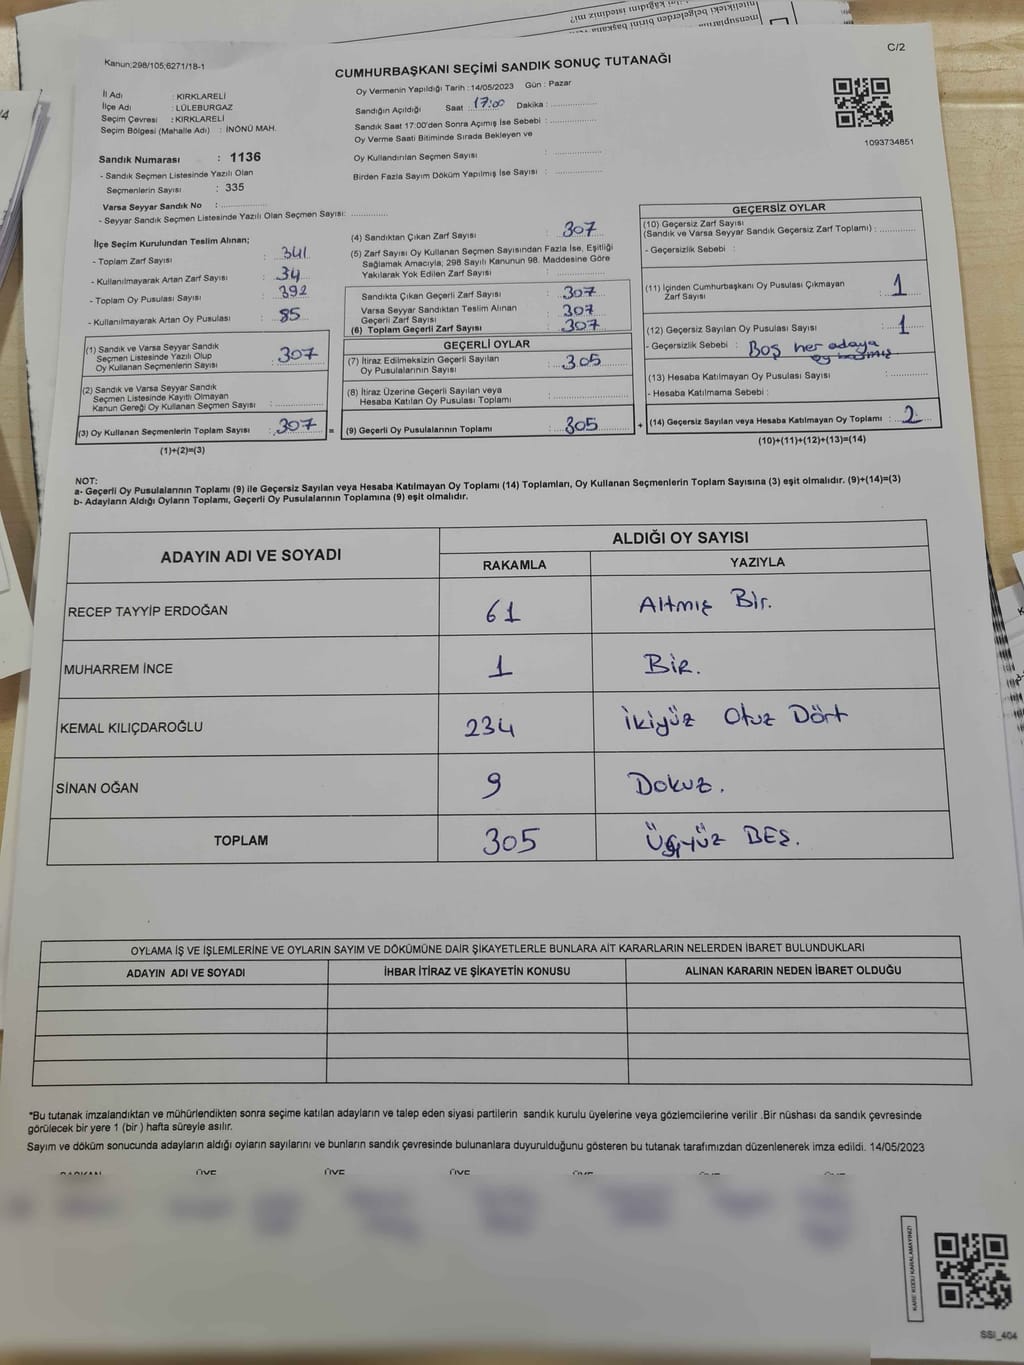 niteliktekİ belgelerden birini başkana
C/2
Kanun;298/105;6271/18-1
CUMHURBAŞKANI SEÇİMİ SANDIK SONUÇ TUTANAĞI
İl Adı : KIRKLARELİ
İlçe Adı : LÜLEBURGAZ
Seçim Çevresi : KIRKLARELİ
Seçim Bölgesi (Mahalle Adı) : İNÖNÜ MAH.
Sandık Numarası : 1136
- Sandık Seçmen Listesinde Yazılı Olan
Seçmenlerin Sayısı : 335
Varsa Seyyar Sandık No :
- Seyyar Sandık Seçmen Listesinde Yazılı Olan Seçmen Sayısı:
Oy Vermenin Yapıldığı Tarih :14/05/2023 Gün : Pazar
Sandığın Açıldığı Saat 17:00 Dakika :
Sandık Saat 17:00'den Sonra Açımış İse Sebebi :
Oy Verme Saati Bitiminde Sırada Bekleyen ve
Oy Kullandırılan Seçmen Sayısı :
Birden Fazla Sayım Döküm Yapılmış İse Sayısı :
1093734851
İlçe Seçim Kurulundan Teslim Alınan;
- Toplam Zarf Sayısı : 341
- Kullanılmayarak Artan Zarf Sayısı : 34
- Toplam Oy Pusulası Sayısı : 392
- Kullanılmayarak Artan Oy Pusulası : 85
(1) Sandık ve Varsa Seyyar Sandık
Seçmen Listesinde Yazılı Olup
Oy Kullanan Seçmenlerin Sayısı : 307
(2) Sandık ve Varsa Seyyar Sandık
Seçmen Listesinde Kayıtlı Olmayan
Kanun Gereği Oy Kullanan Seçmen Sayısı :
(3) Oy Kullanan Seçmenlerin Toplam Sayısı : 307 =
(1)+(2)=(3)
(4) Sandıktan Çıkan Zarf Sayısı : 307
(5) Zarf Sayısı Oy Kullanan Seçmen Sayısından Fazla İse, Eşitliği
Sağlamak Amacıyla; 298 Sayılı Kanunun 98. Maddesine Göre
Yakılarak Yok Edilen Zarf Sayısı :
Sandıkta Çıkan Geçerli Zarf Sayısı : 307
Varsa Seyyar Sandıktan Teslim Alınan
Geçerli Zarf Sayısı : 307
(6) Toplam Geçerli Zarf Sayısı : 307
GEÇERLİ OYLAR
(7) İtiraz Edilmeksizin Geçerli Sayılan
Oy Pusulalarının Sayısı : 305
(8) İtiraz Üzerine Geçerli Sayılan veya
Hesaba Katılan Oy Pusulası Toplamı :
(9) Geçerli Oy Pusulalarının Toplamı : 305 +
GEÇERSİZ OYLAR
(10) Geçersiz Zarf Sayısı
(Sandık ve Varsa Seyyar Sandık Geçersiz Zarf Toplamı) :
- Geçersizlik Sebebi :
(11) İçinden Cumhurbaşkanı Oy Pusulası Çıkmayan
Zarf Sayısı : 1
(12) Geçersiz Sayılan Oy Pusulası Sayısı : 1
- Geçersizlik Sebebi : Boş her adaya
oy
(13) Hesaba Katılmayan Oy Pusulası Sayısı :
- Hesaba Katılmama Sebebi :
(14) Geçersiz Sayılan veya Hesaba Katılmayan Oy Toplamı : 2
(10)+(11)+(12)+(13)=(14)
NOT:
a- Geçerli Oy Pusulalarının Toplamı (9) ile Geçersiz Sayılan veya Hesaba Katılmayan Oy Toplamı (14) Toplamları, Oy Kullanan Seçmenlerin Toplam Sayısına (3) eşit olmalıdır. (9)+(14)=(3)
b- Adayların Aldığı Oyların Toplamı, Geçerli Oy Pusulalarının Toplamına (9) eşit olmalıdır.
ADAYIN ADI VE SOYADI ALDIĞI OY SAYISI
RAKAMLA YAZIYLA
RECEP TAYYİP ERDOĞAN 61 Altmış Bir.
MUHARREM İNCE 1 Bir.
KEMAL KILIÇDAROĞLU 234 İkiyüz Otuz Dört
SİNAN OĞAN 9 Dokuz.
TOPLAM 305 Üçyüz BEŞ.
OYLAMA İŞ VE İŞLEMLERİNE VE OYLARIN SAYIM VE DÖKÜMÜNE DAİR ŞİKAYETLERLE BUNLARA AİT KARARLARIN NELERDEN İBARET BULUNDUKLARI
ADAYIN ADI VE SOYADI İHBAR İTİRAZ VE ŞİKAYETİN KONUSU ALINAN KARARIN NEDEN İBARET OLDUĞU
*Bu tutanak imzalandıktan ve mühürlendikten sonra seçime katılan adayların ve talep eden siyasi partilerin sandık kurulu üyelerine veya gözlemcilerine verilir .Bir nüshası da sandık çevresinde
görülecek bir yere 1 (bir ) hafta süreyle asılır.
Sayım ve döküm sonucunda adayların aldığı oyların sayılarını ve bunların sandık çevresinde bulunanlara duyurulduğunu gösteren bu tutanak tarafımızdan düzenlenerek imza edildi. 14/05/2023
BAŞKAN ÜYE ÜYE ÜYE ÜYE ÜYE ÜYE
KARE KODU KARALAMAYINIZ!
SSI_404